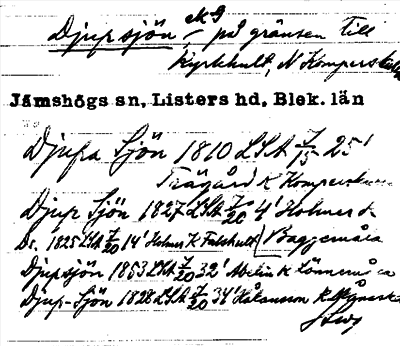 Djupsjön, på gränsen till
Kyrkhult, N Kemperskulla
Jämshögs sn, Listers hd, Blek. län
Djupa Sjön 1810 LSA 7/15 25'
Trägård K Komperskulla
Djup Sjön 1827 LSA 7/20 4' Holmer K
Ds. 1825 LSA 7/20 14' Holmer K Falshult Baggemåla
Djupsjön 1853 LSA 7/20 32' K
Djup-Sjön 1828 LSA 7/20 34' Håkansson K